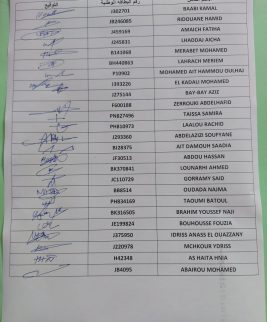 للتوقيع رقم البطاقة الوطنية
J302701 BAABI KAMAL
JB246085 RIDOUANE HAMID
J459169 AMAICH FATIHA
J245831 LHADDAJ AICHA
R141068 MERABET MOHAMED
BH440863 LAHRACH MERIEM
P10902 MOHAMED AIT HAMMOU OULHAJ
J393226 EL KADALI MOHAMED
J275144 BAY-BAY AZIZ
F600188 ZERROUKI ABDELHAFID
PN827496 TAISSA SAMIRA
PH810973 LAALOU RACHID
J293360 ABDELAZIZ SOUFYANE
BJ28375 AIT DAMOUH SAADIA
JF30513 ABDOU HASSAN
BK370841 LOUNARHI AHMED
JC110729 GORRAMY SAID
BB8514 OUDADA NAJMA
PH834169 TAOUMI BATOUL
BK316505 BRAHIM YOUSSEF NAJI
JE199824 BOUHOUSSE FOUZIA
J375950 IDRISS ANASS EL OUAZZANY
J220978 MCHKOUR YDRISS
H42348 AS HAITA HNIA
JB4095 ABAIROU MOHAMED